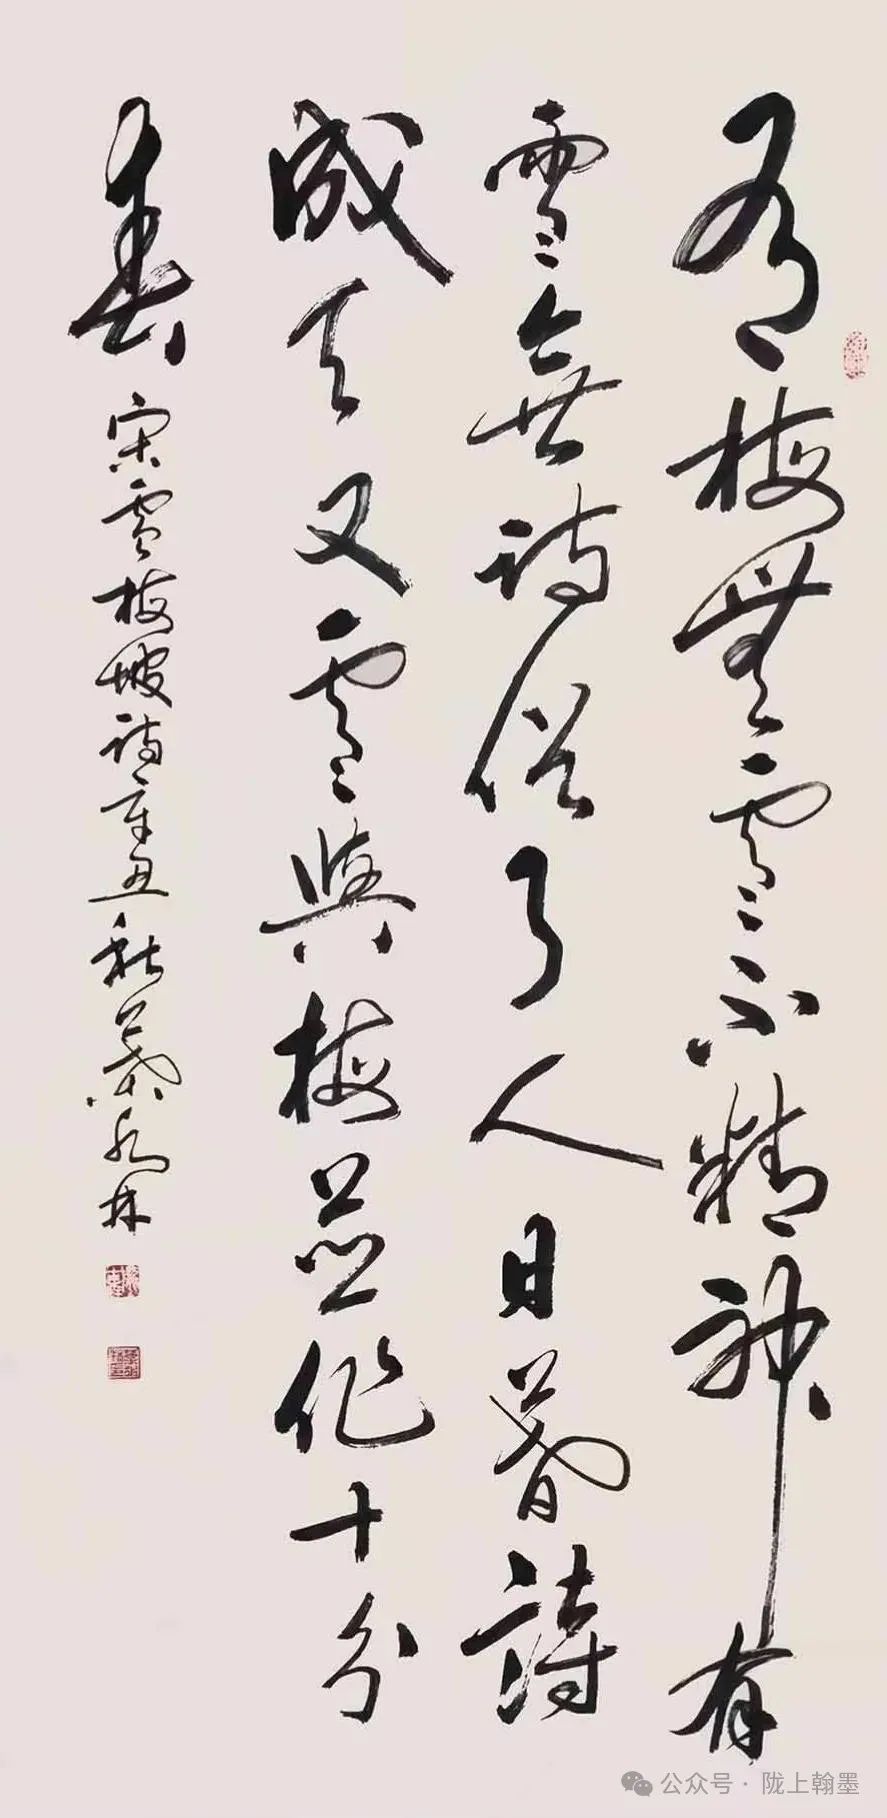 有梅無雪不精神有
雪無詩俗了人日暮詩
成天又雪與梅並作十分
春
宋雪梅坡詩辛丑秋永林
公众号·陇上翰墨